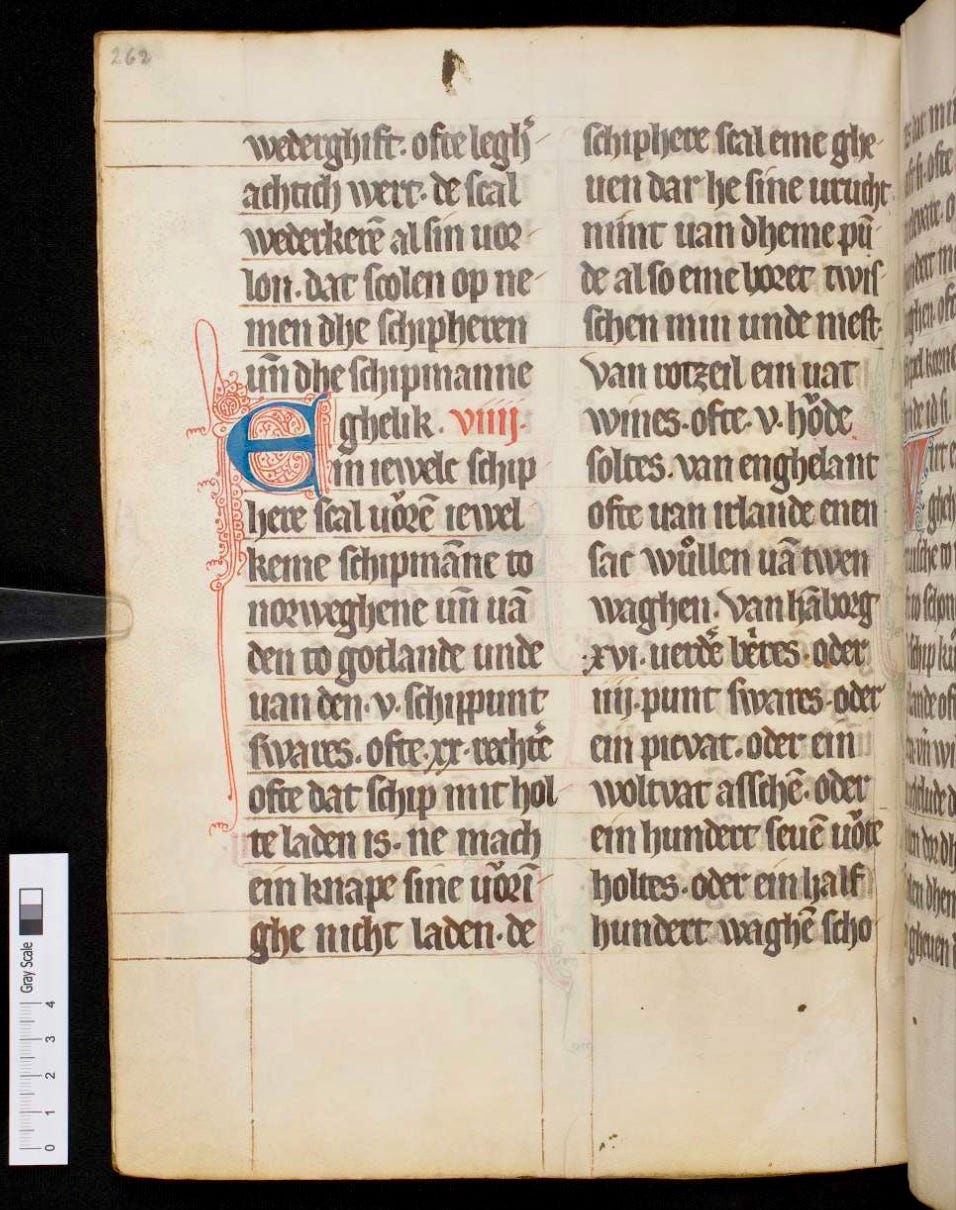 262
wederghift. ofte leghͤ-
achtich wert. de scal
wederkerē al sin vor-
lon. dat scolen op ne-
men dhe schipheren
un̄ dhe schipmanne
ghelik. viiij.
Ein iewelc schip
here scal uͦorē iewel
keme schipmāne to
norweghene un̄ uā
den to gotlande unde
uan den. v. schippunt
swares. ofte. xx. rechtͤe
ofte dat schip mit hol
te laden is. ne mach
ein knape sine uͦorī-
ghe nicht laden. de
schiphere scal eme ghe-
uen dar he sine urucht
nimt uan dheme pū-
de also eme boret twis-
schen min unde mest.
Van rotzeil ein uat
wines. ofte. v. hͦode
soltes. van enghelant
ofte uan irlande enen
sac wͦullen uā twen
waghen. Van hāborg
xvi. uerdͤe bͤeres. oder
iiij. punt swares. oder
ein picvat. oder ein
woltvat asschē. oder
ein hundert seuē uͦote
holtes. oder ein half
hundert waghē scho
0 1 2 3 4
Gray Scale